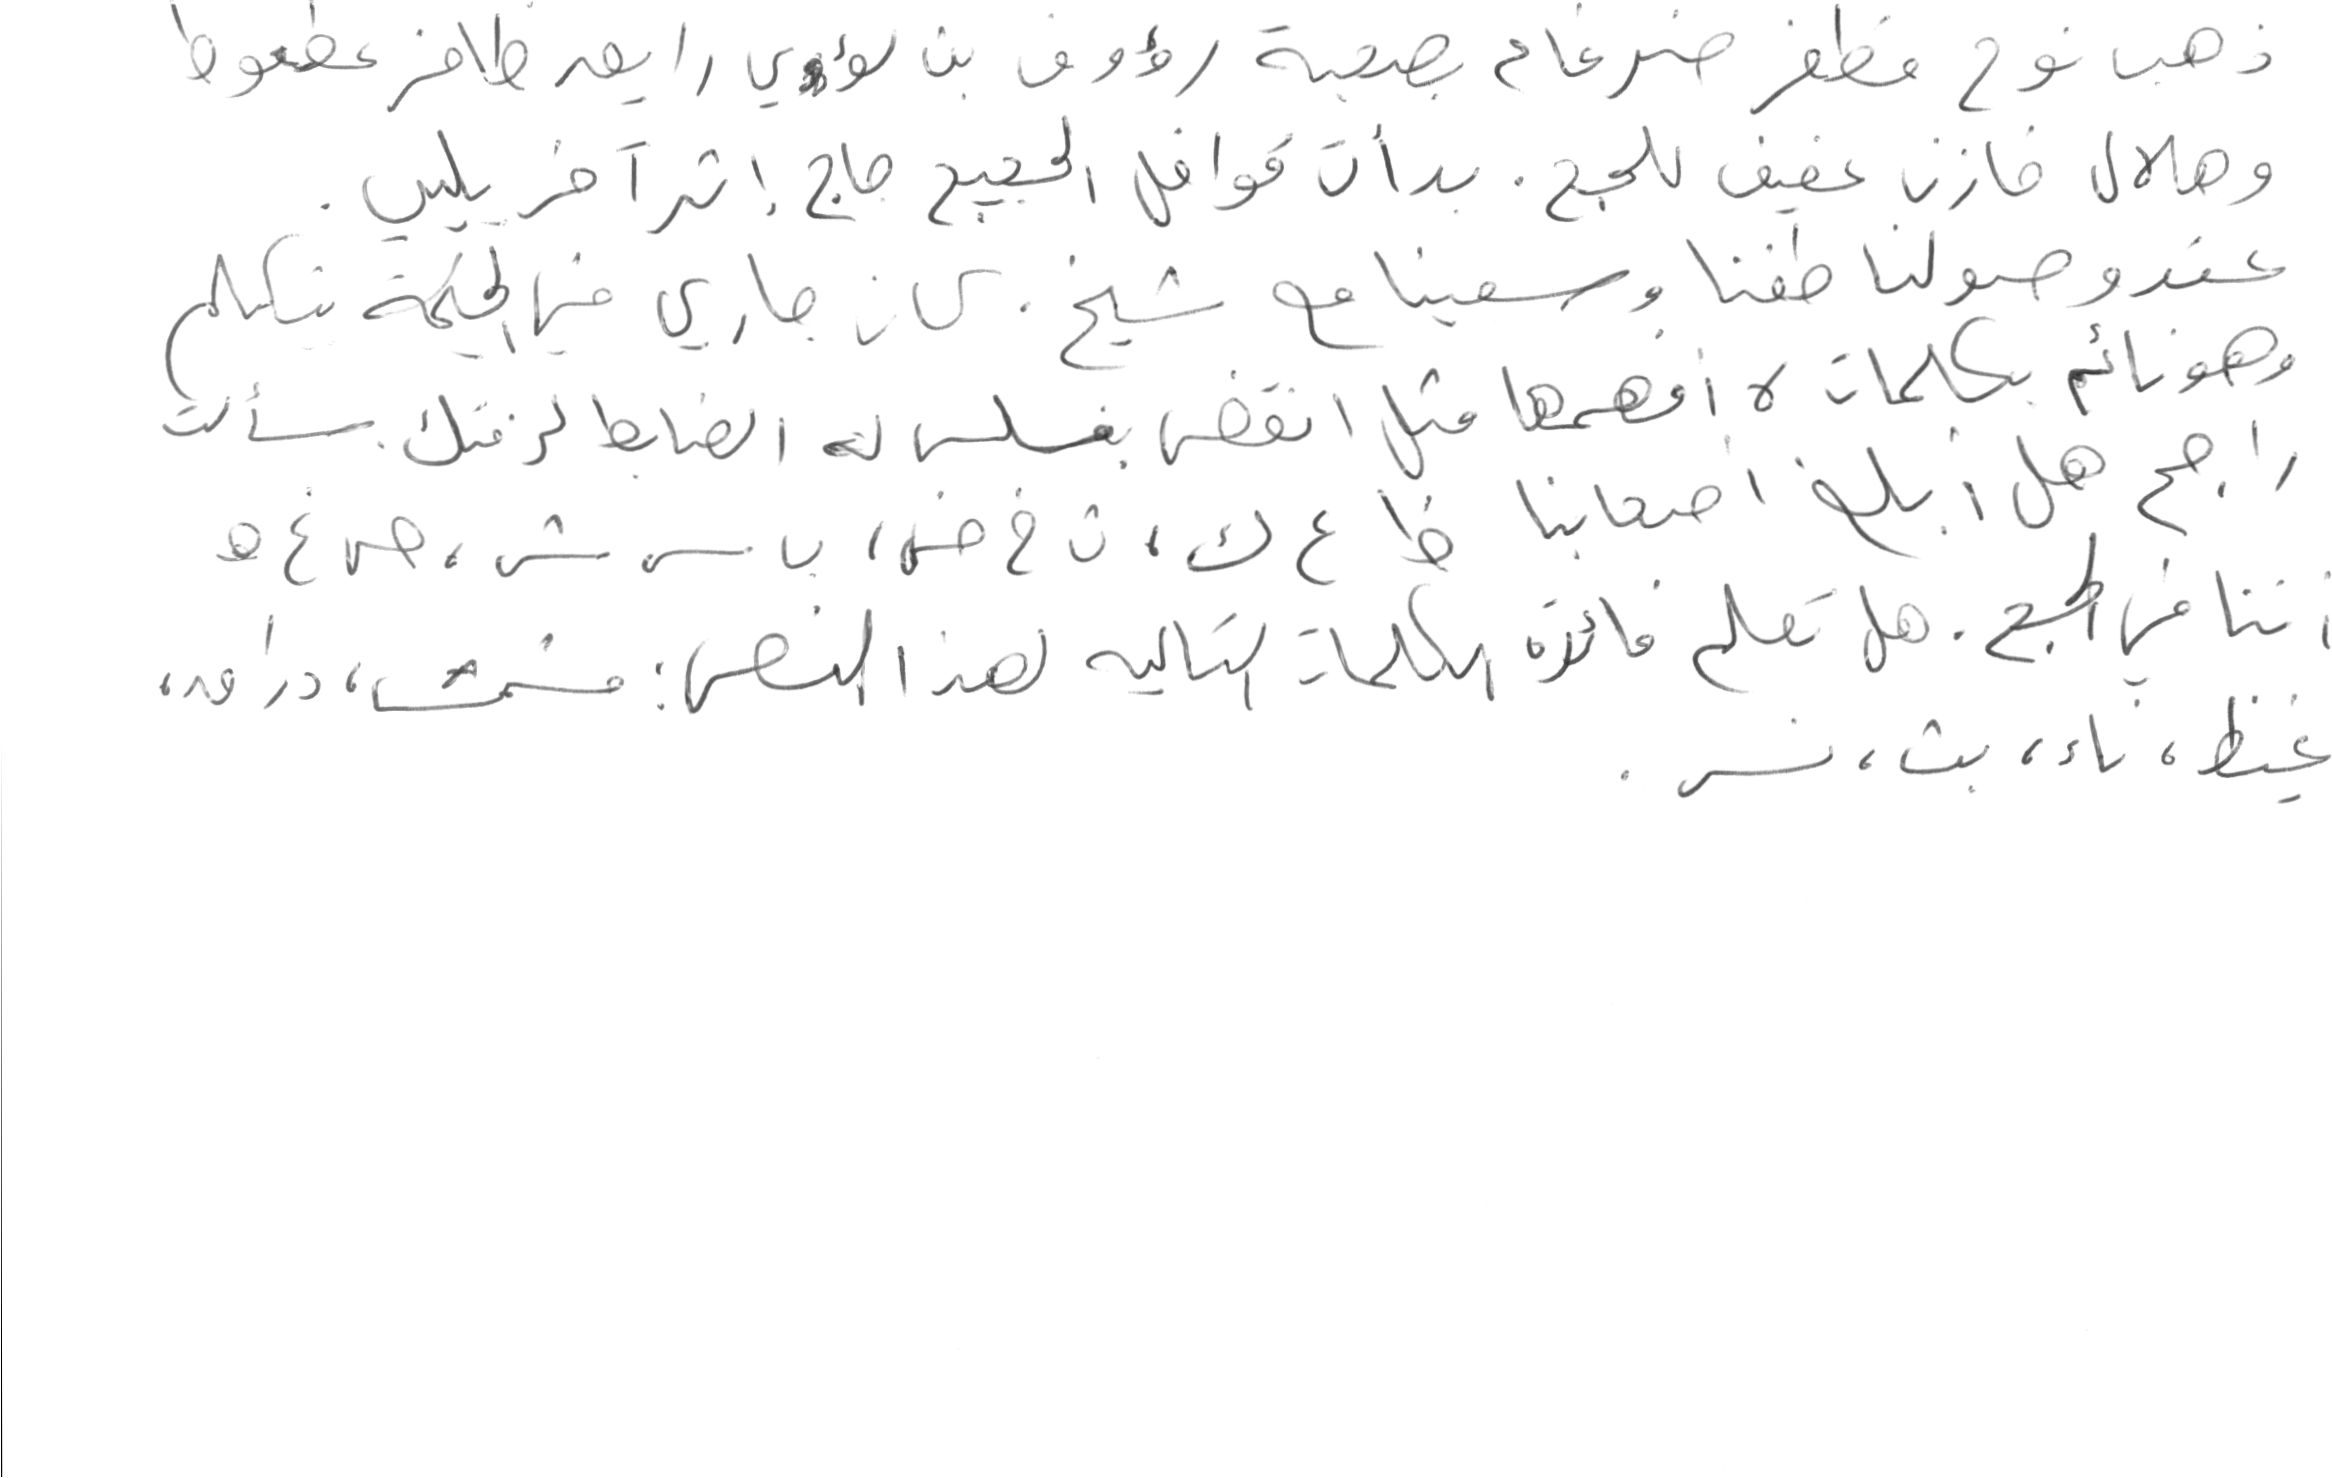 ذهب نوح مظفر ضرغام بصحبة رؤوف بن لؤي رايعه ظافر عطعوط
وهلال خازن عفيف للحج . بدأت قوافل الحجيج حاج إثر آخر يلبس .
عند وصولنا طفنا وسعينا مع شيخ . كان جاري في الحكمة يتكلم
وهو نائم بكلمات لا أفهمها مثل انقض بغلس له الضابط لزفتك . سألت
راجح هل أبلغ أصحابنا ظ ع ك ، ث غ ض ، ب س ش ، ص غ ه
أننا في الحج . هل تعلم فائزة الكلمات التالية لهذا النص : مشمش ، درأ ،
غيظ ، ناء ، بث ، نسر .